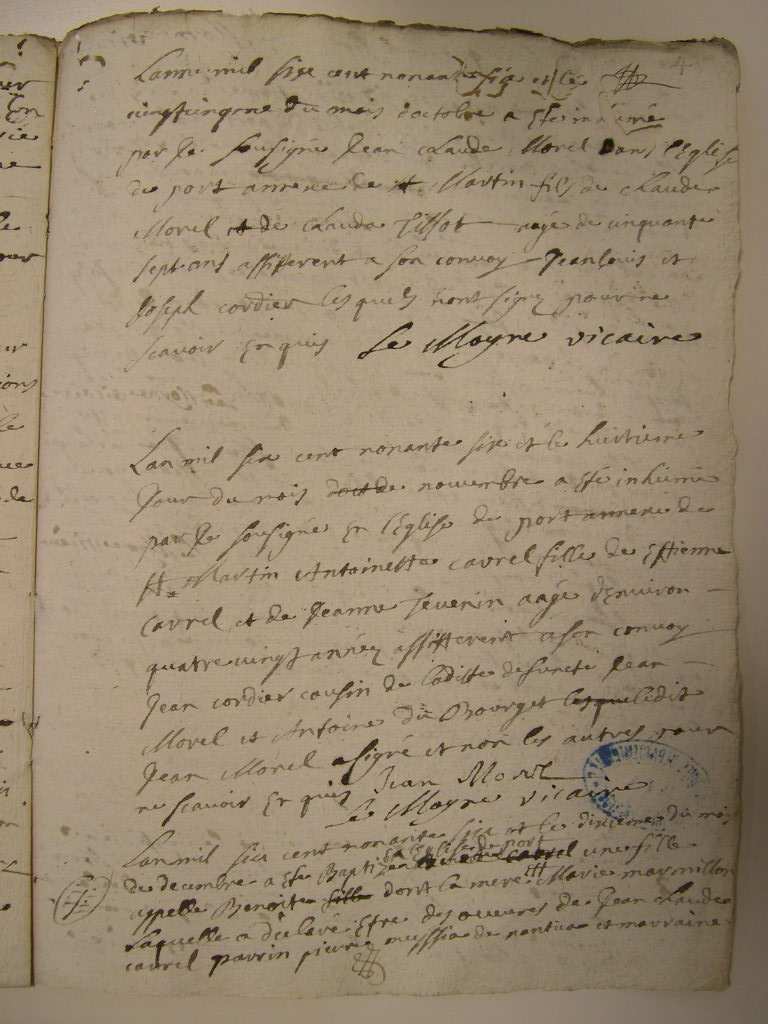 4
Lanne mil six cent nonante six et le
vingtcinqme du mois doctobre a esté inhumé
par Je sousigné Jean Claude Morel Dans l'Eglise
de port annexe de st Martin fils de Claude
Morel et de Clauda Tissot aagé de cinquante
sept ans assisterent a son convoy Jean Louis et
Joseph cordier lesquels n'ont signéz pour ne
scavoir Enquis Le Moyne vicaire
Lan mil six cent nonante six et le huitieme
Jour du mois de novembre a esté inhumé
par Je sousigné En l'Eglise de port annexe de
st Martin Antoinette Cavrel fille de Estienne
Cavrel et de Jeanne Tevenin aagé d'Environ
quatre vingt annéez assisterent a son convoy
Jean cordier cousin de laditte defuncte Jean
Morel et Antoine du Bourget ledit
Jean Morel a signé et non les autres pour
ne scavoir Enquis Jean Morel
Le Moyne vicaire
Lan mil six cent nonante six et le dixieme du mois
en l'Eglise de port
de decembre a esté Baptizé une fille
appellé Benoite dont la mere Marie marmillon
Laquelle a déclaré Estre des oeuvres de Jean Claude
Cavrel parrin pierre mussia de nantua et marraine